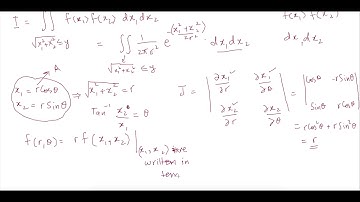 I = ∬ f(x₁) f(x₂) dx₁dx₂
√(x₁²+x₂²) ≤ y
= ∬ 1/(2πr²) e^(-(x₁²+x₂²)/(2r²)) dx₁dx₂
√(x₁²+x₂²) ≤ y
f(x₁) f(x₂)
dx₁ dx₂
A
x₁ = r cosθ
x₂ = r sinθ
⇒ √(x₁²+x₂²) = r
Tan⁻¹ x₂/x₁ = θ
J = | ∂x₁/∂r ∂x₁/∂θ | = | cosθ -r sinθ |
| ∂x₂/∂r ∂x₂/∂θ | | sinθ r cosθ |
= r cos²θ + r sin²θ
= r
f(r,θ) = r f(x₁,x₂) |(x₁,x₂) are
written in
term